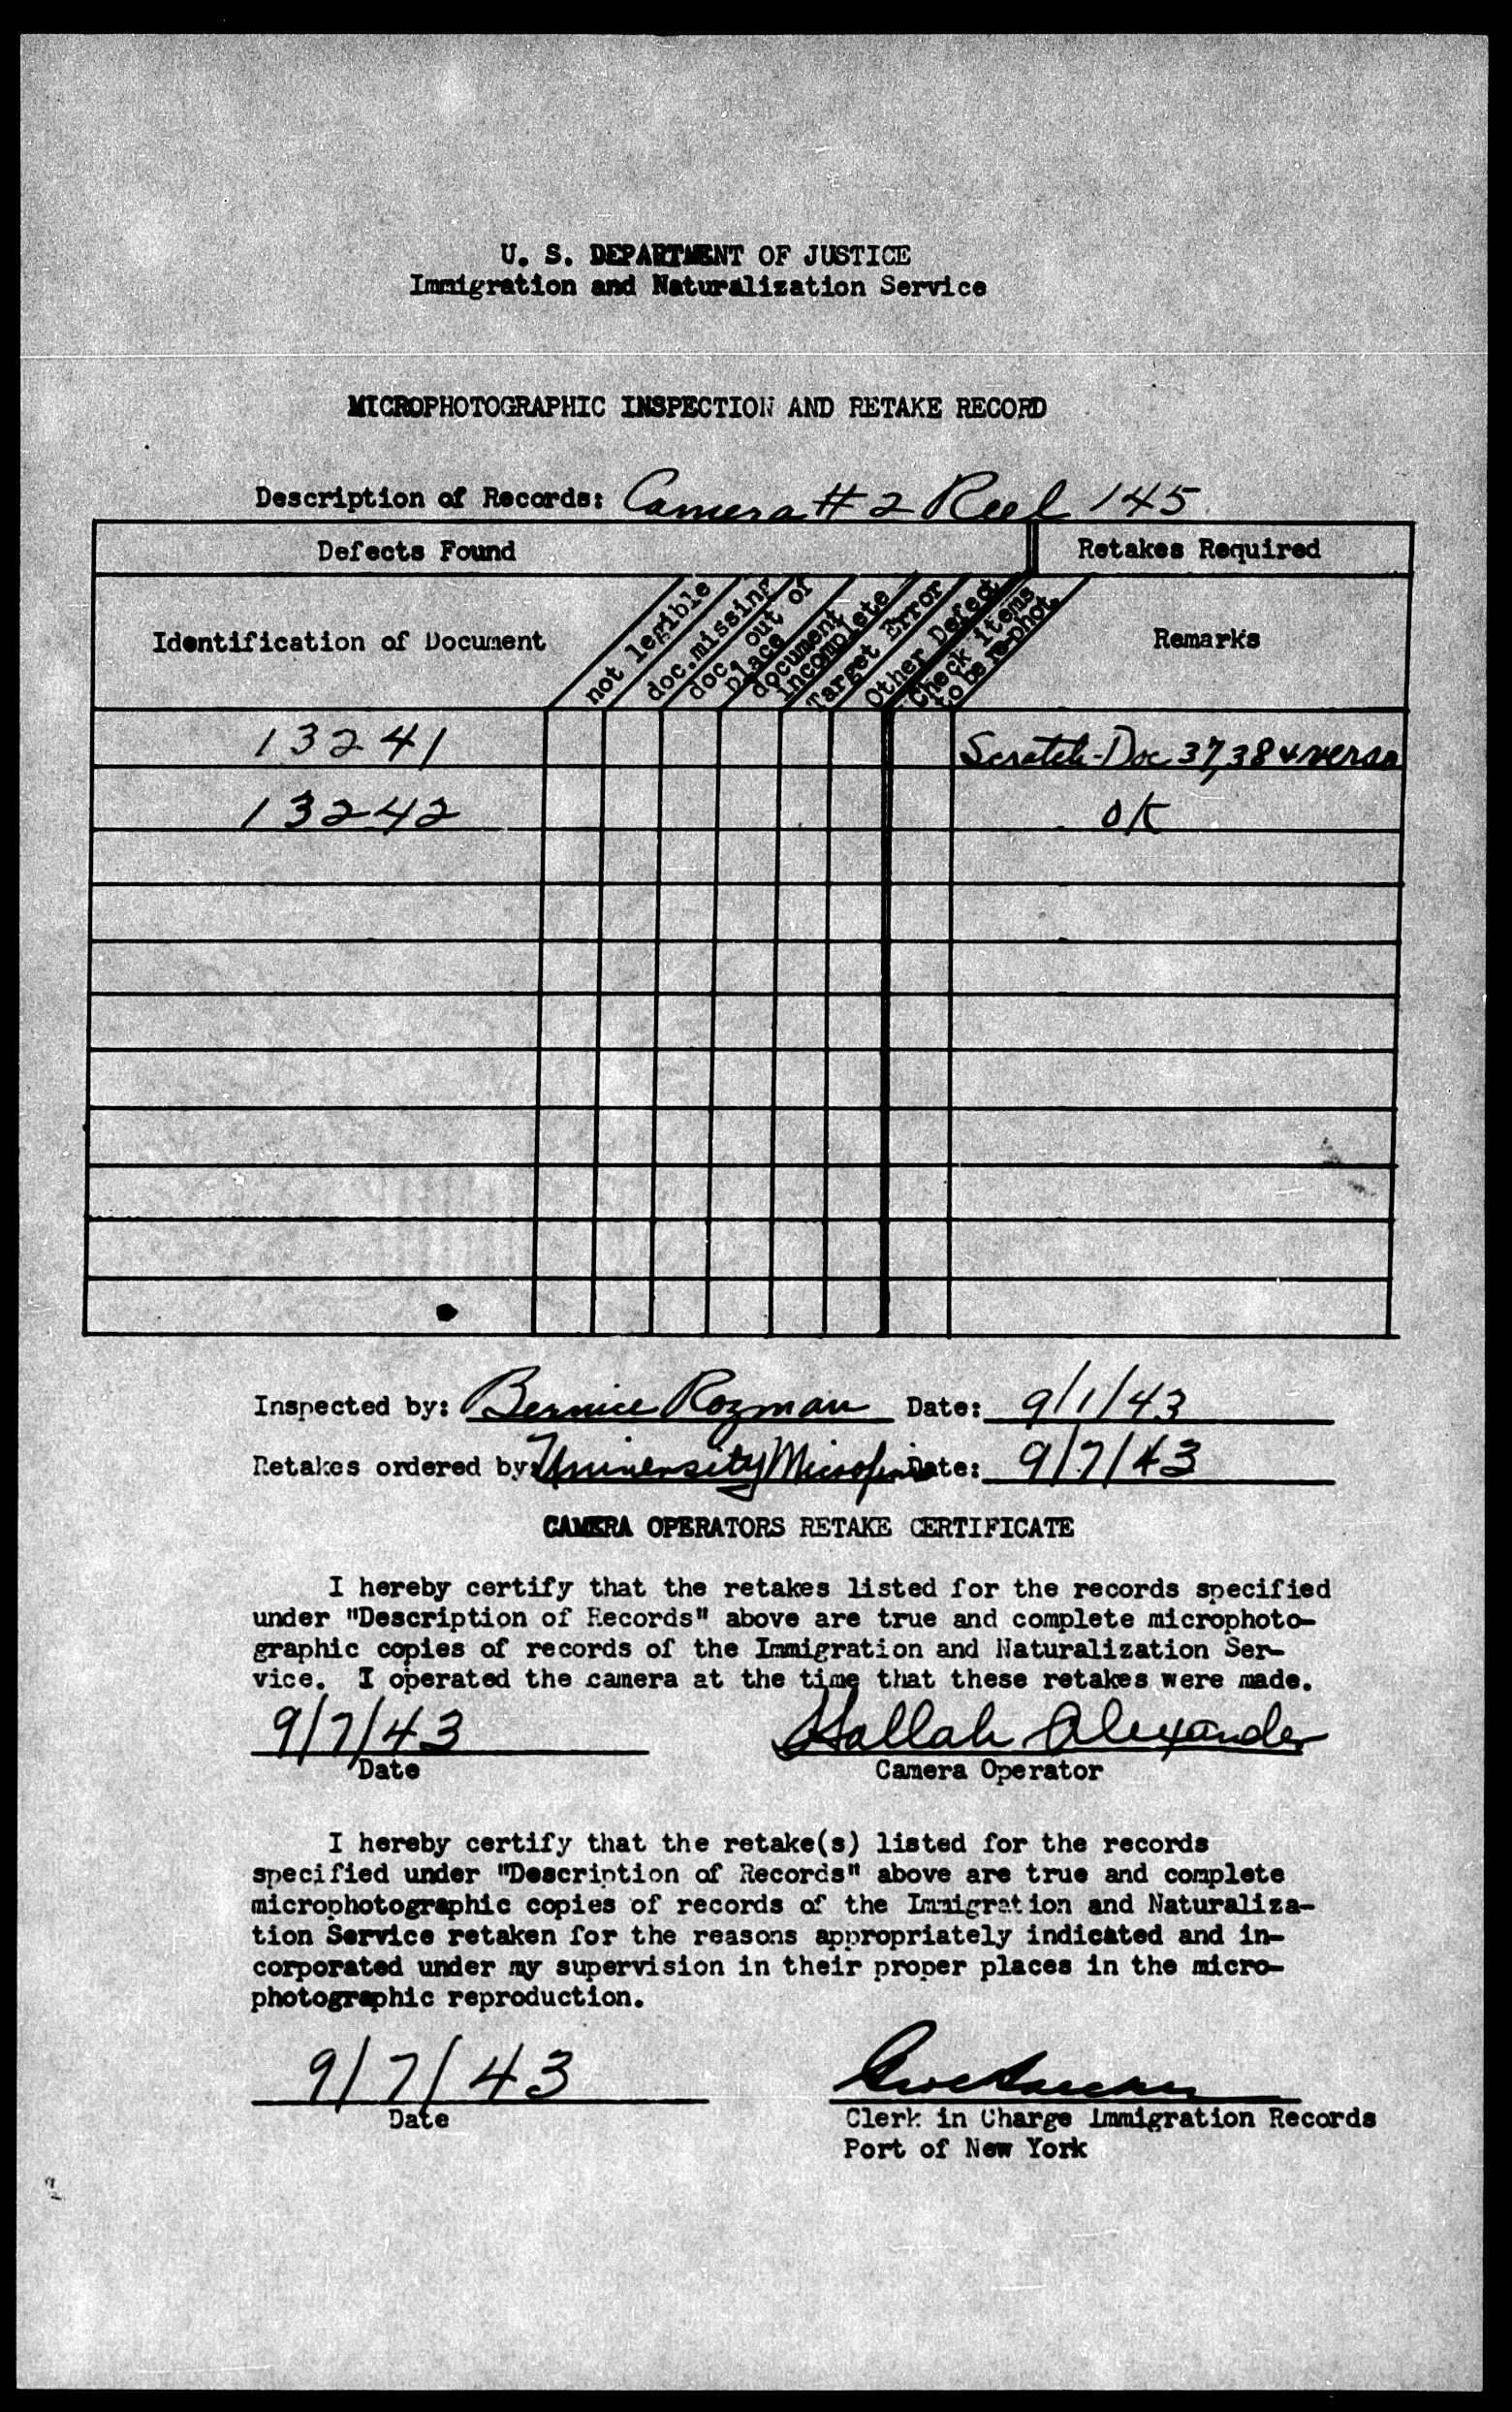 U. S. DEPARTMENT OF JUSTICE
Immigration and Naturalization Service
MICROPHOTOGRAPHIC INSPECTION AND RETAKE RECORD
Description of Records: Camera #2 Reel 145
Defects Found Retakes Required
Identification of Document not legible doc.missing doc. out of place document incomplete Target Error Other Defect Check items to be re-phot. Remarks
13241 Scratch-Doc 37,38 & verso
13242 OK
Inspected by: Bernice Rozman Date: 9/1/43
Retakes ordered by: University Microfilms Date: 9/7/43
CAMERA OPERATORS RETAKE CERTIFICATE
I hereby certify that the retakes listed for the records specified
under "Description of Records" above are true and complete microphoto-
graphic copies of records of the Immigration and Naturalization Ser-
vice. I operated the camera at the time that these retakes were made.
9/7/43 Hallah Alexander
Date Camera Operator
I hereby certify that the retake(s) listed for the records
specified under "Description of Records" above are true and complete
microphotographic copies of records of the Immigration and Naturaliza-
tion Service retaken for the reasons appropriately indicated and in-
corporated under my supervision in their proper places in the micro-
photographic reproduction.
9/7/43
Date Clerk in Charge Immigration Records
Port of New York